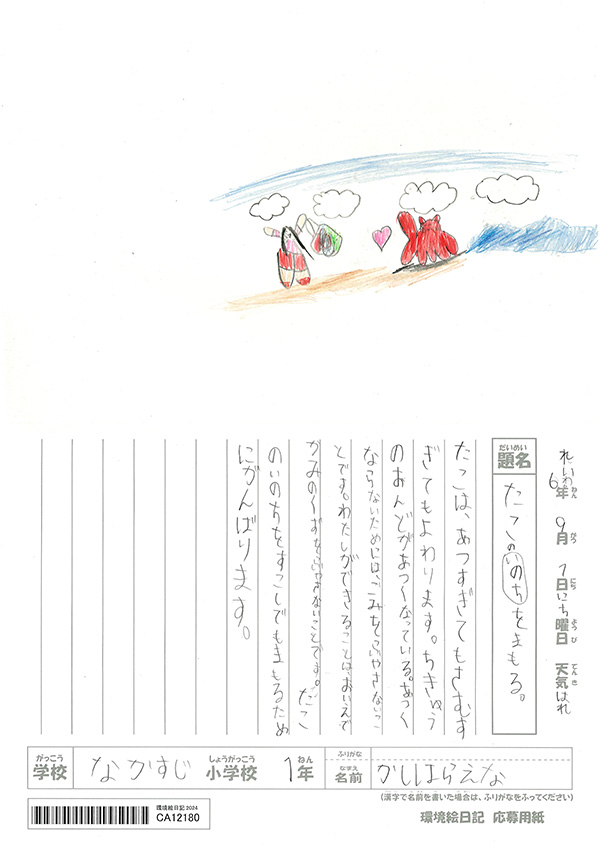 れいわ6年 9月 1日にち曜日 天気はれ
ねん がつ にち ようび てんき
だいめい
題名 たこのいのちをまもる。
たこは、あつすぎてもさむす
ぎてもよわります。ちきゅう
のおんどがあつくなっている。あつく
ならないためには、ごみをふやさないこ
とです。わたしができることは、おいえで
かみのくずをふやさないことです。たこ
のいのちをすこしでもまもるため
にがんばります。
がっこう しょうがっこう ねん ふりがな
学校 なかすじ 小学校 1年
なまえ
名前 かしはらえな
(漢字で名前を書いた場合は、ふりがなをふってください)
環境絵日記 2024
CA12180
環境絵日記 応募用紙